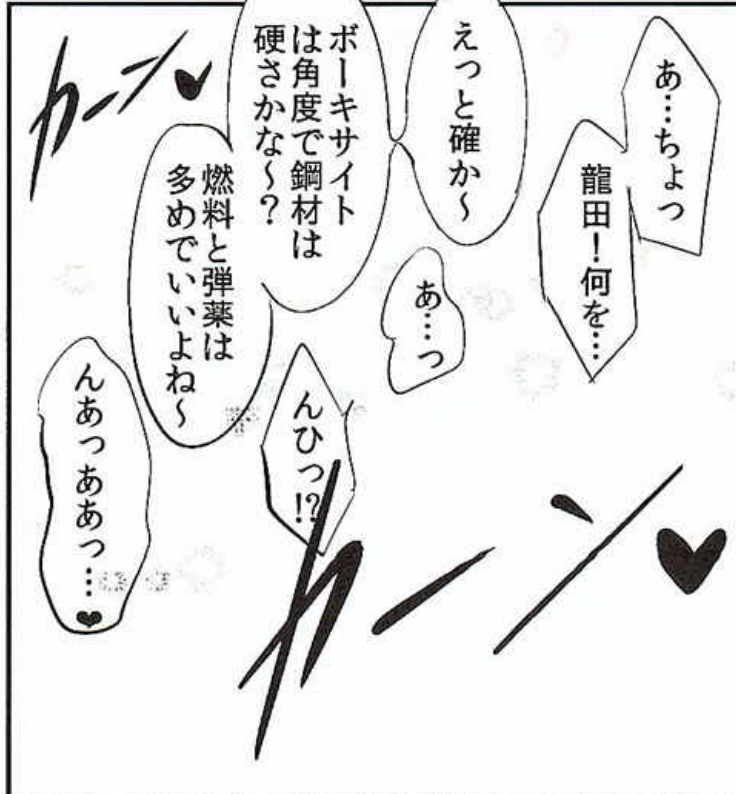 あ…ちょっ
龍田！何を…
えっと確か～
ボーキサイト
は角度で鋼材は
硬さかな～？
燃料と弾薬は
多めでいいよね～
カーン♥
あ…っ
んひっ!?
んあっああっ…♥
カーン♥